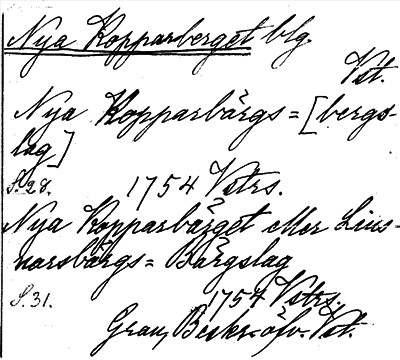 Nya Kopparberget blg
Vst.
Nya Kopparbärgs=[bergs-
lag]
S. 28. 1754 Vstrs.
Nya Kopparbärget eller Lius-
narsbärgs= Bärgslag
S. 31. 1754 Vstrs.
Grau, Beskr. öfv. Vst.